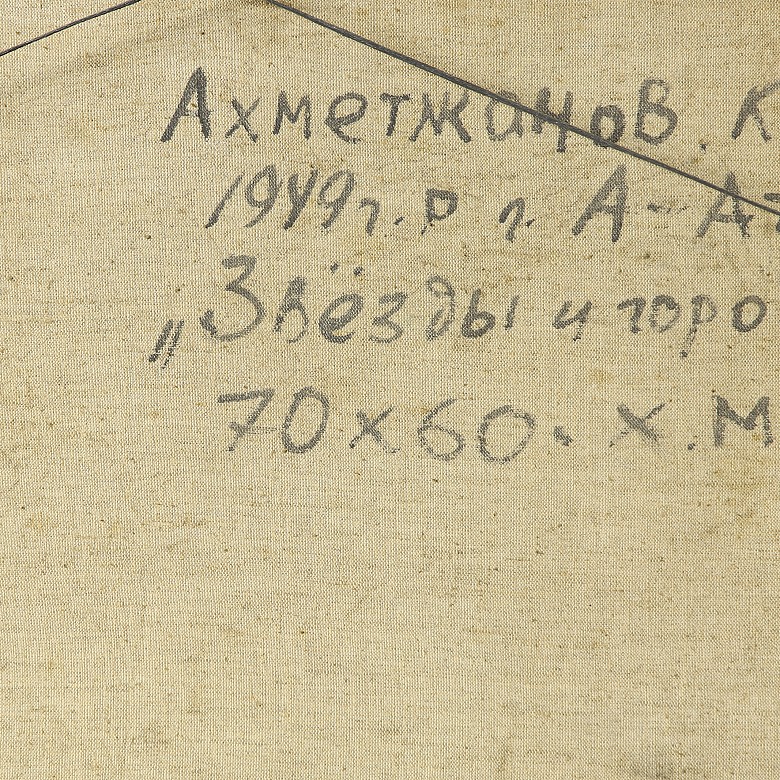 Ахметжанов. К
1949г. р г. А-А
„Звёзды и горо
70х60. х.м